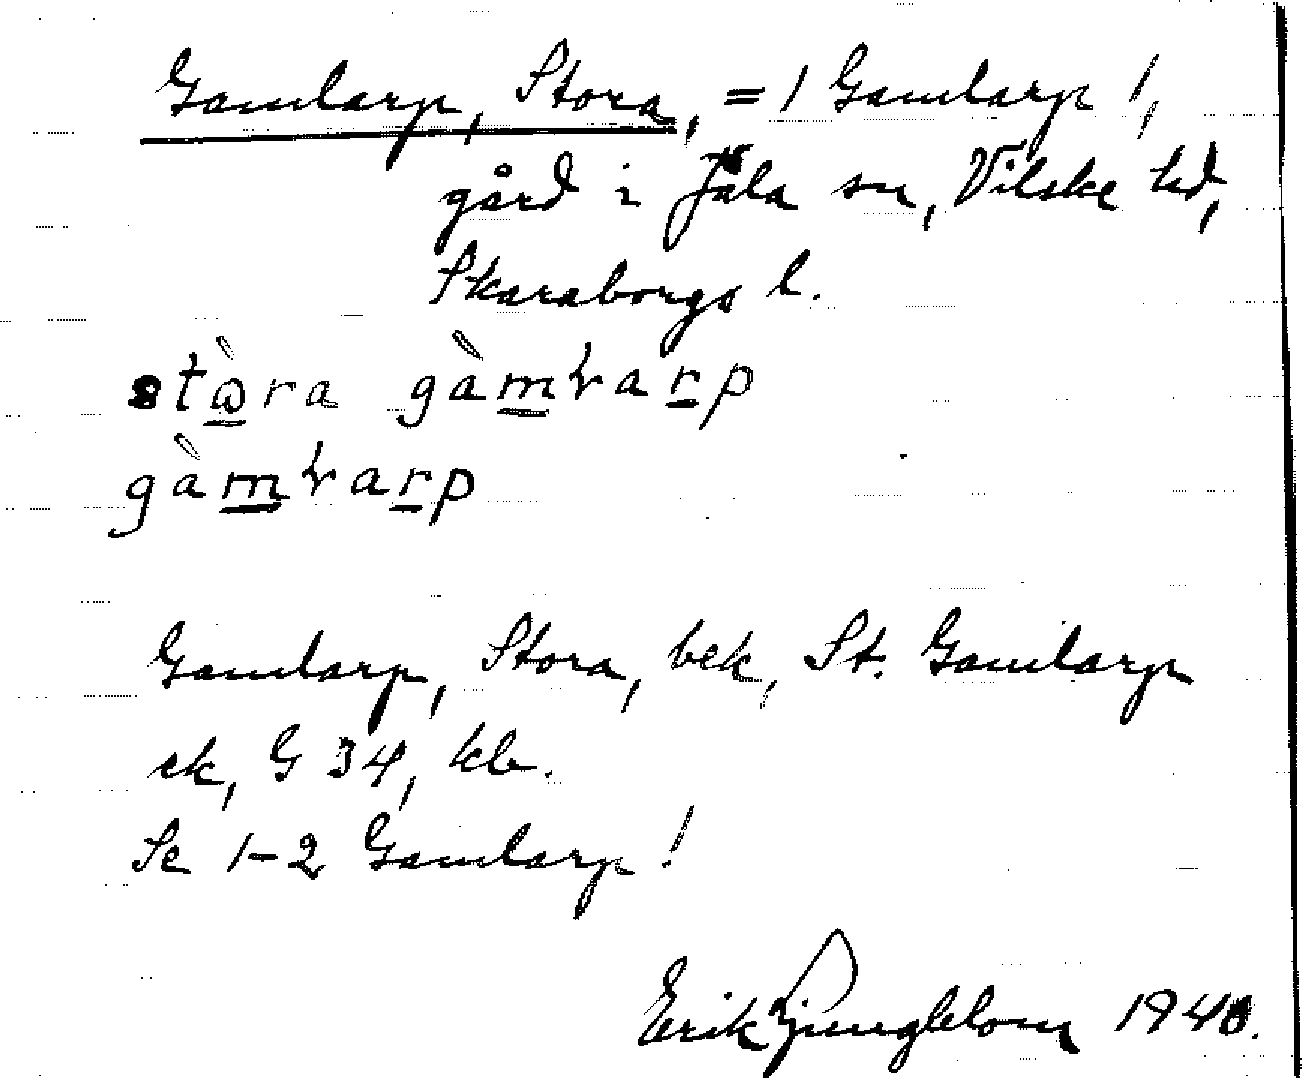 Gamlarp, Stora, = 1 Gamlarp !,
gård i Jäla sn, Vilske hd,
Skaraborgs l.
stɷ̀ra gàmɽarp
gàmɽarp
Gamlarp, Stora, bek, St. Gamlarp
ek, G 34, kb.
Se 1-2 Gamlarp!
Erik Ljungblom 1940.